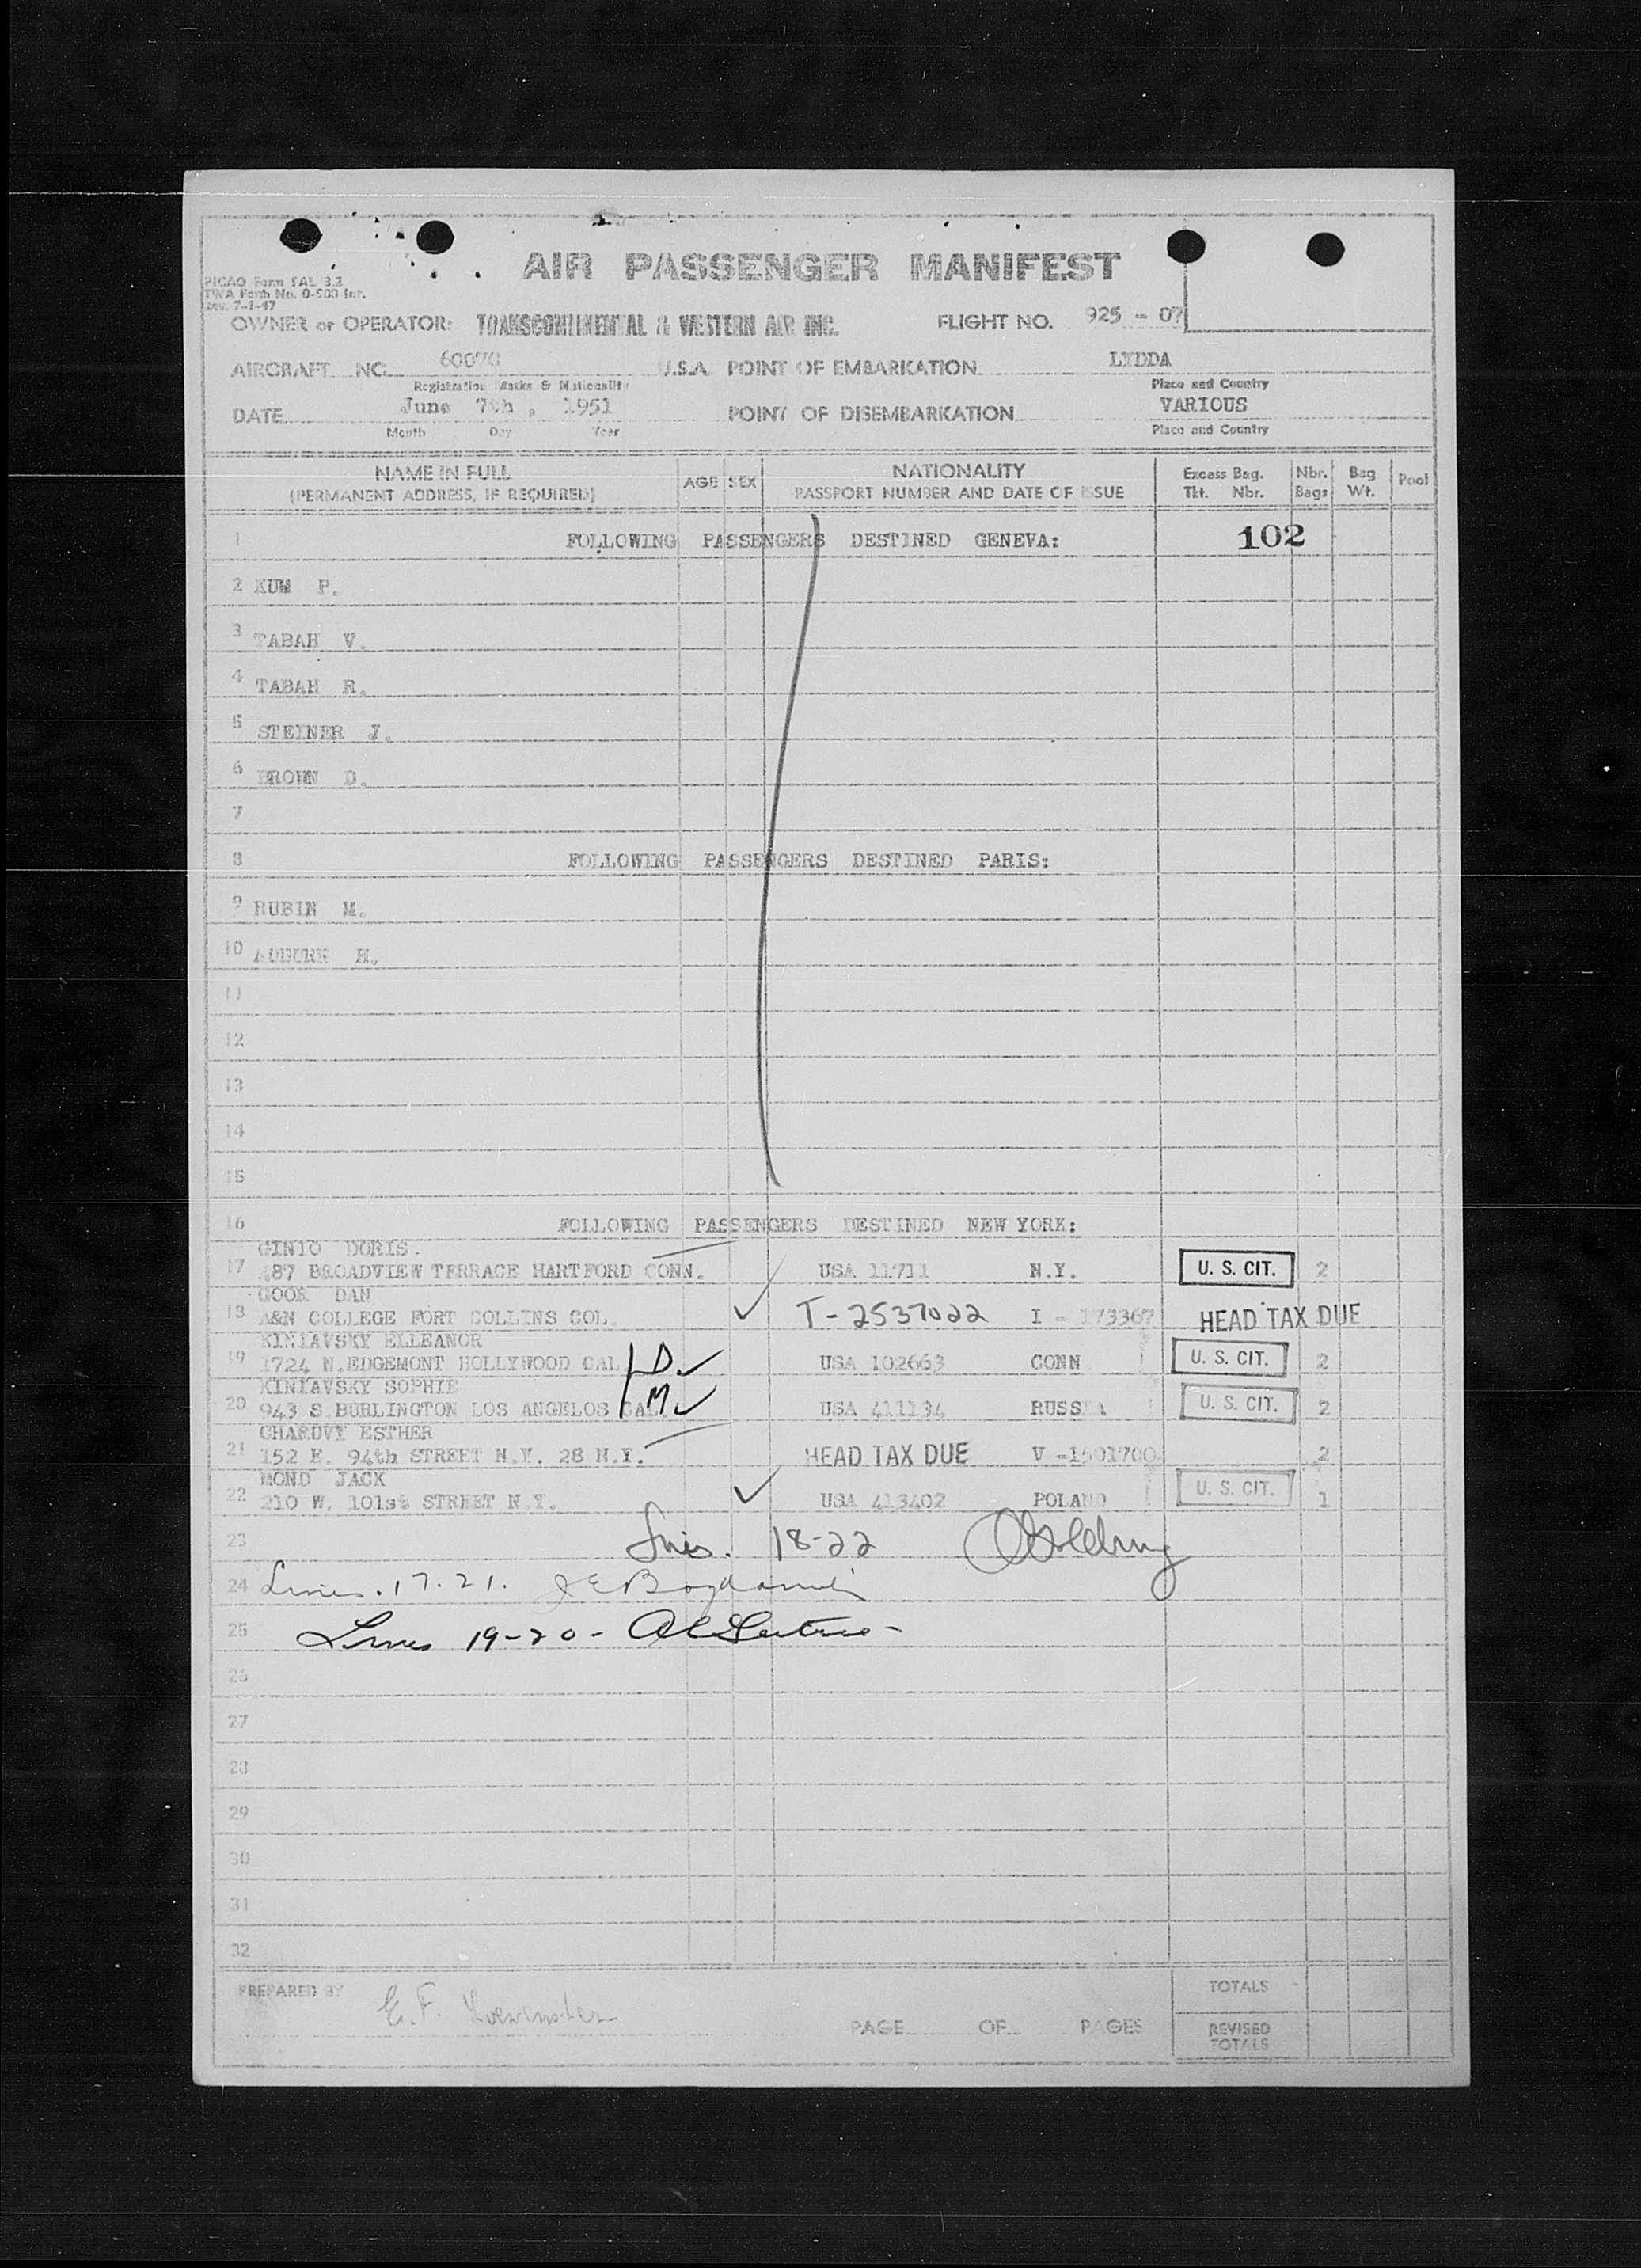 AIR PASSENGER MANIFEST
PICAO Form FAL 3.2
TWA Form No. 0-500 Int.
Rev. 7-1-47
OWNER or OPERATOR: TRANSCONTINENTAL & WESTERN AIR INC. FLIGHT NO. 925 - 07
AIRCRAFT NO. 60070 U.S.A. POINT OF EMBARKATION LYDDA
Registration Marks & Nationality Place and Country
DATE June 7th, 1951 POINT OF DISEMBARKATION VARIOUS
Month Day Year Place and Country
NAME IN FULL AGE SEX NATIONALITY Excess Bag. Nbr. Bag Pool
(PERMANENT ADDRESS, IF REQUIRED) PASSPORT NUMBER AND DATE OF ISSUE Tkt. Nbr. Bags Wt.
1 FOLLOWING PASSENGERS DESTINED GENEVA: 102
2 KUM P.
3 TABAH V.
4 TABAH R.
5 STEINER J.
6 BROWN D.
7
8 FOLLOWING PASSENGERS DESTINED PARIS:
9 RUBIN M.
10 H.
11
12
13
14
15
16 FOLLOWING PASSENGERS DESTINED NEW YORK:
GINIO DORIS.
17 487 BROADVIEW TERRACE HARTFORD CONN. USA 11711 N.Y. U. S. CIT. 2
DAN
18 A&N COLLEGE FORT COLLINS COL. T-2537022 I - 173367 HEAD TAX DUE
KINIAVSKY ELLEANOR
19 1724 N.EDGEMONT HOLLYWOOD CAL D. USA 102663 CONN U. S. CIT. 2
KINIAVSKY SOPHIE
20 943 S.BURLINGTON LOS ANGELOS CAL. M USA 411134 RUSSIA U. S. CIT. 2
CHARUVY ESTHER
21 152 E. 94th STREET N.Y. 28 N.Y. HEAD TAX DUE V -1501700 2
MOND JACK
22 210 W. 101st STREET N.Y. USA 413402 POLAND U. S. CIT. 1
23 18-22
24 Lines. 17.21.
25 Lines 19-20 -
26
27
28
29
30
31
32
PREPARED BY E. F. TOTALS
PAGE OF PAGES REVISED
TOTALS